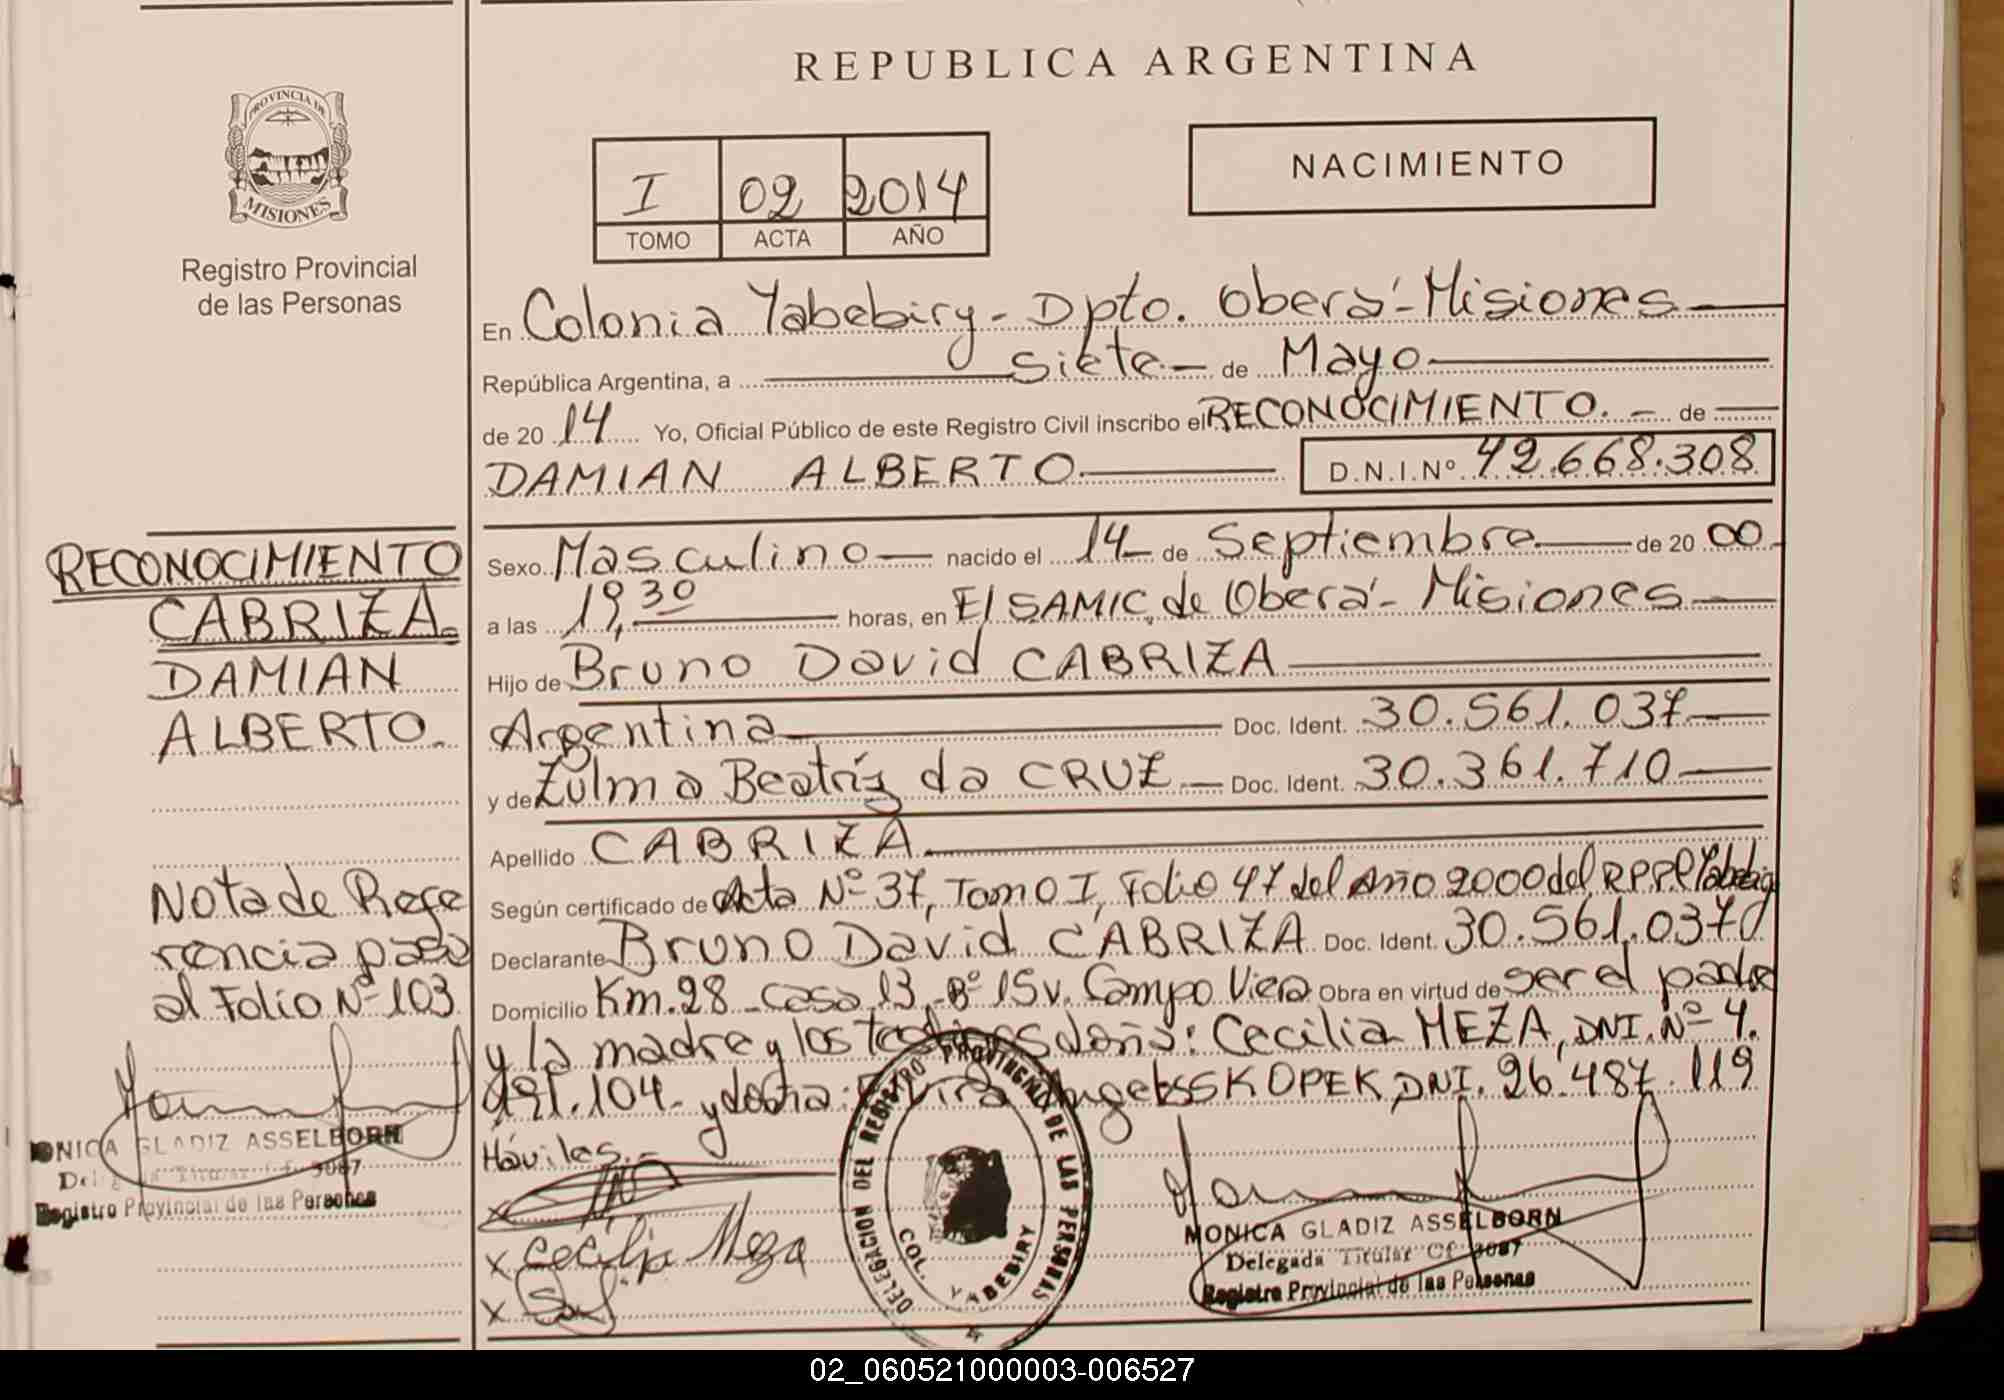 REPUBLICA ARGENTINA
PROVINCIA DE
MISIONES
Registro Provincial
de las Personas
I 02 2014
TOMO ACTA AÑO
NACIMIENTO
En Colonia Yabebiry - Dpto. Oberá - Misiones
República Argentina, a siete de Mayo
de 20 14 Yo, Oficial Público de este Registro Civil inscribo el RECONOCIMIENTO. - de
DAMIAN ALBERTO D.N.I.Nº 42.668.308
Sexo Masculino nacido el 14 de Septiembre de 20 00
a las 19,30 horas, en El SAMIC, de Oberá - Misiones
Hijo de Bruno David CABRIZA
Argentina Doc. Ident. 30.561.037
y de Zulma Beatríz da CRUZ Doc. Ident. 30.361.710
Apellido CABRIZA
Según certificado de Acta Nº 37, Tomo I, Folio 47 del Año 2000 del R.P.P.
Declarante Bruno David CABRIZA Doc. Ident. 30.561.037
Domicilio Km.28 - Casa 13 - Bº Campo Viera Obra en virtud de ser el padre
y la madre y los doña: Cecilia MEZA, DNI. Nº 4.
.104 - y doña: SKOPEK, DNI. 26.487.119
Háviles. -
x
x Cecilia Meza
x
RECONOCIMIENTO
CABRIZA
DAMIAN
ALBERTO.
Nota de Refe
rencia pasa
al Folio Nº 103
MONICA GLADIZ ASSELBORN
Delegada Titular Cf. 3087
Registro Provincial de las Personas
DELEGACION DEL REGISTRO PROVINCIAL DE LAS PERSONAS
COL. YABEBIRY
MONICA GLADIZ ASSELBORN
Delegada Titular Cf. 3087
Registro Provincial de las Personas
02_060521000003-006527